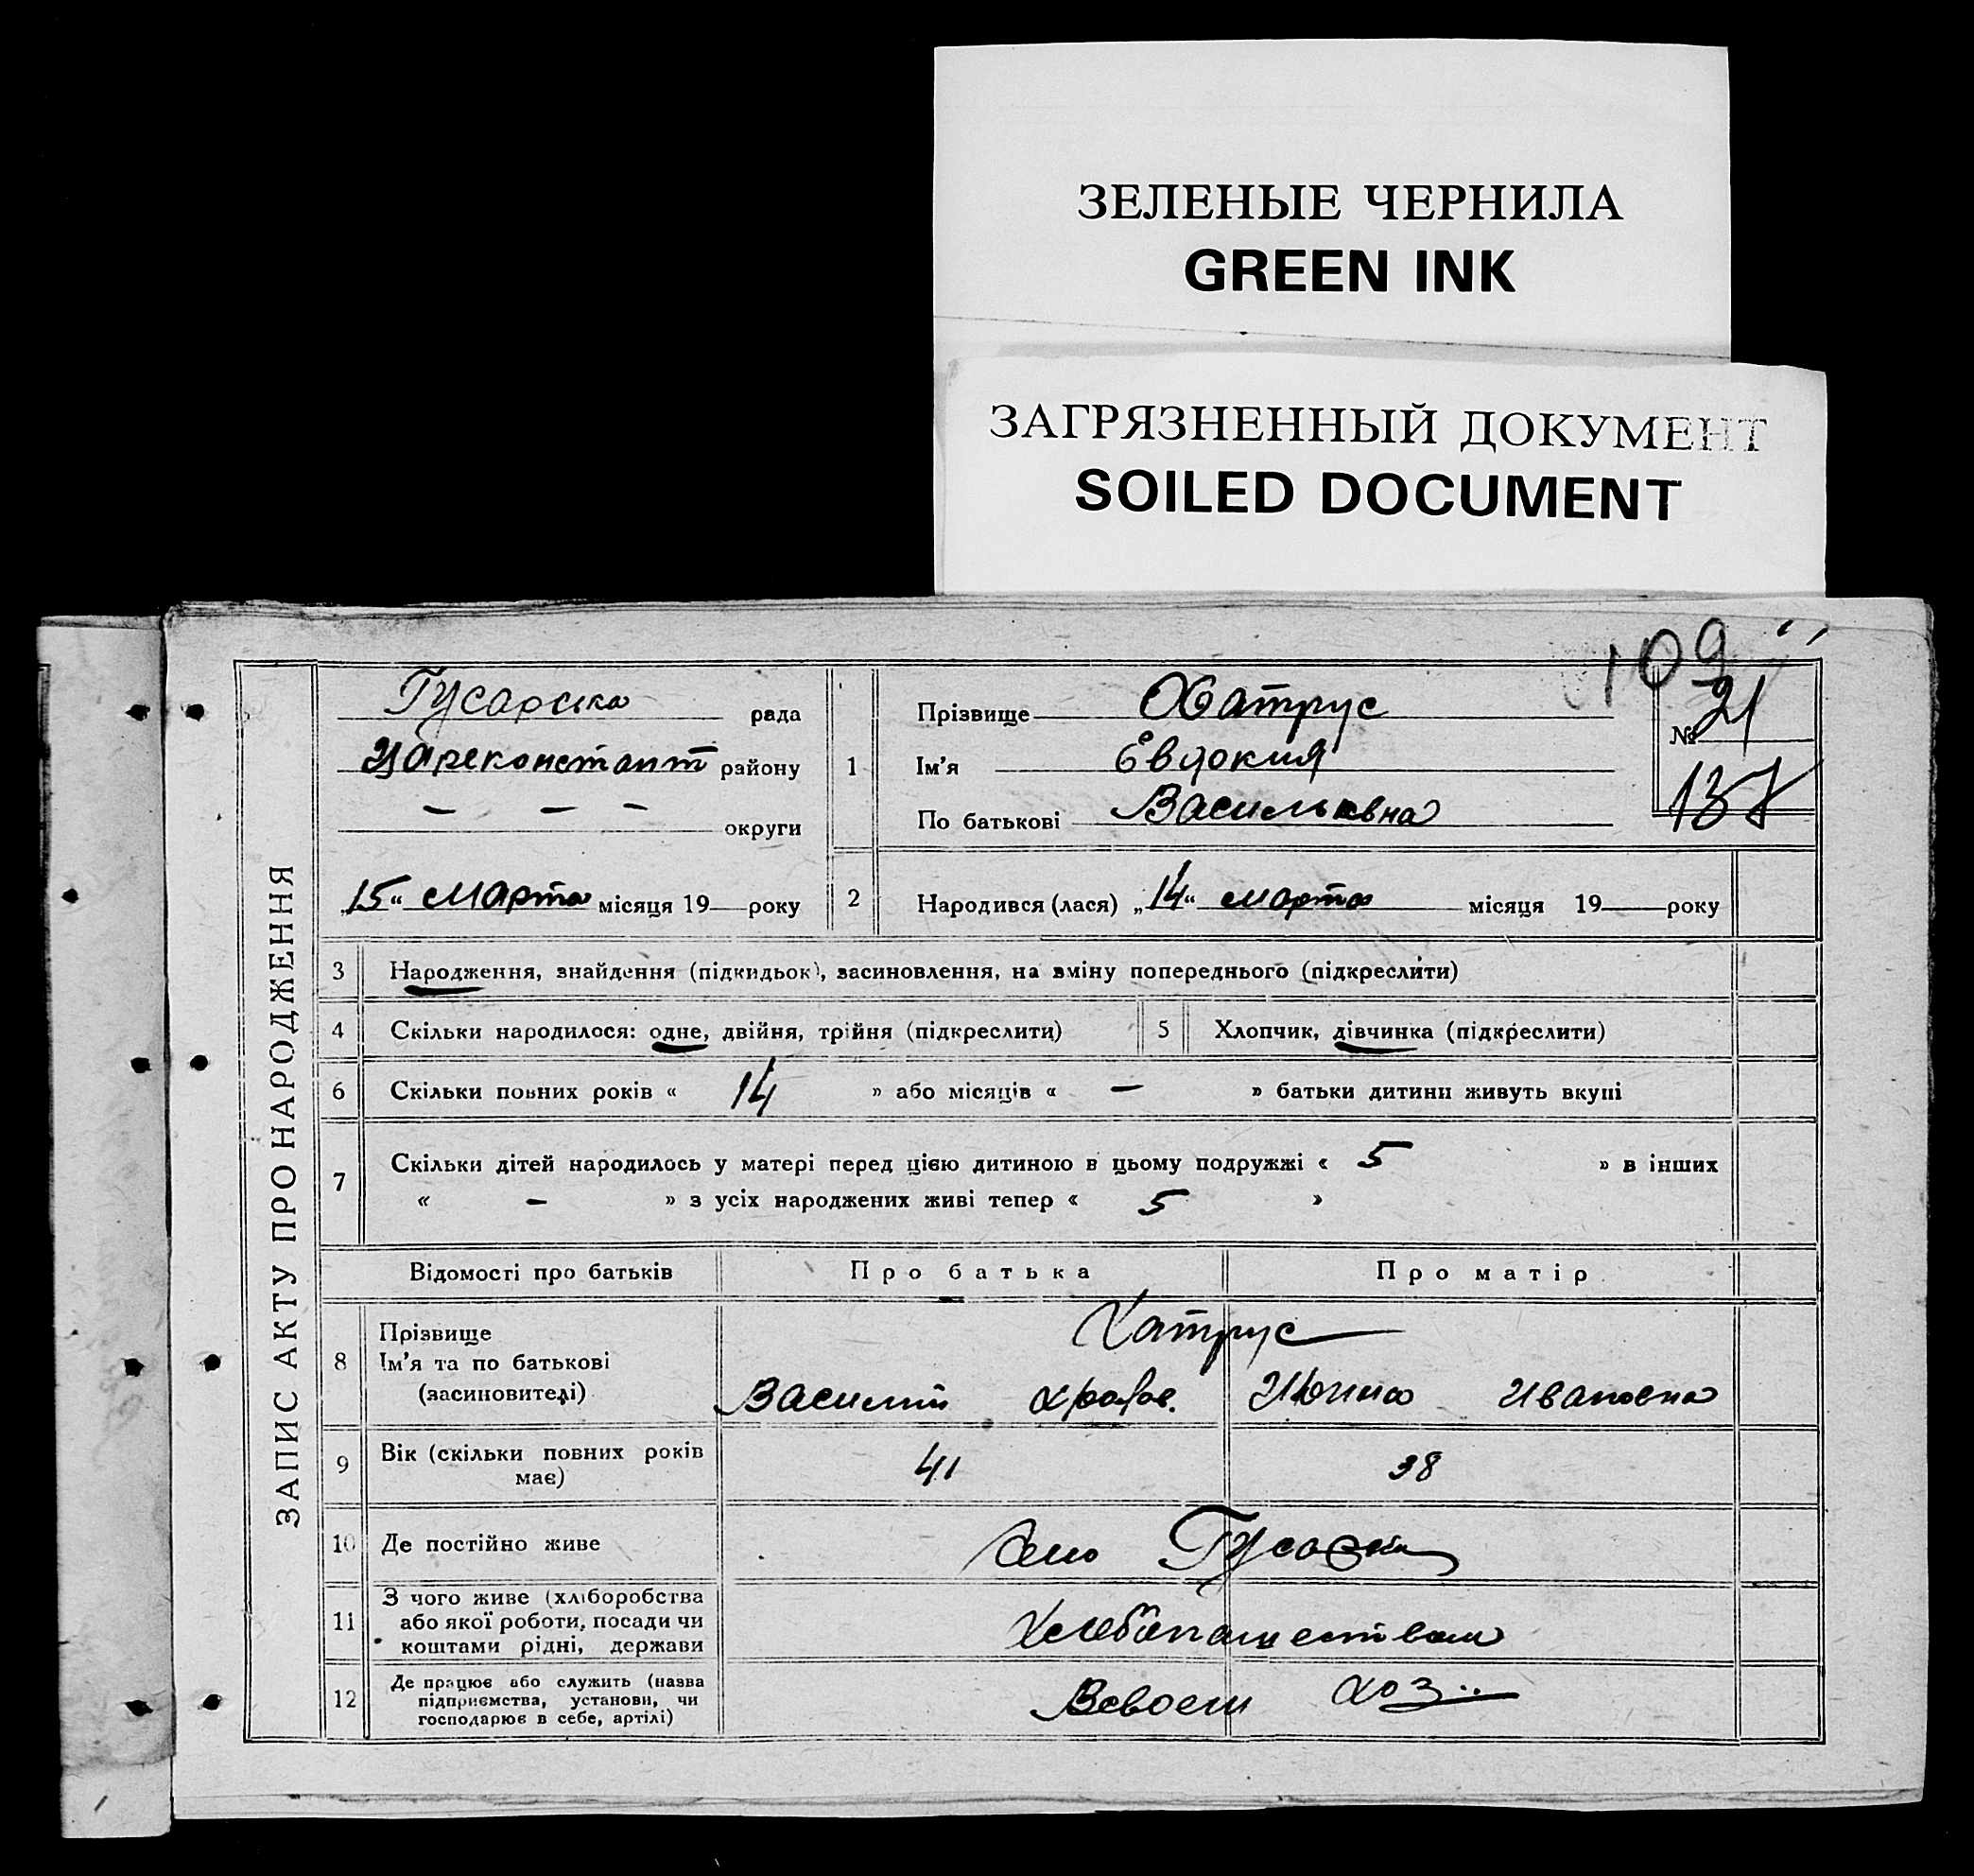 ЗЕЛЕНЫЕ ЧЕРНИЛА
GREEN INK
ЗАГРЯЗНЕННЫЙ ДОКУМЕНТ
SOILED DOCUMENT
109
ЗАПИС АКТУ ПРО НАРОДЖЕННЯ
Гусарска рада
Цареконстант району
— — — округи
„15“ марта місяця 19 — року
1
Прізвище Хатрус
Ім'я Евдокия
По батькові Васильевна
№ 21
137
2 Народився (лася) „14“ марта місяця 19 — року
3 Народження, знайдення (підкидьок), засиновлення, на вміну попереднього (підкреслити)
4 Скільки народилося: одне, двійня, трійня (підкреслити) 5 Хлопчик, дівчинка (підкреслити)
6 Скільки повних років « 14 » або місяців « — » батьки дитини живуть вкупі
7 Скільки дітей народилось у матері перед цією дитиною в цьому подружжі « 5 » в інших
« — » з усіх народжених живі тепер « 5 »
Відомості про батьків Про батька Про матір
8 Прізвище Хатрус
Ім'я та по батькові
(засиновителі) Василий Ивановна
9 Вік (скільки повних років
має) 41 38
10 Де постійно живе Село Гусарка
11 З чого живе (хліборобства
або якої роботи, посади чи
коштами рідні, держави Хлебопашеством
12 Де працює або служить (назва
підприємства, установи, чи
господарює в себе, артілі) Всвоем хоз..